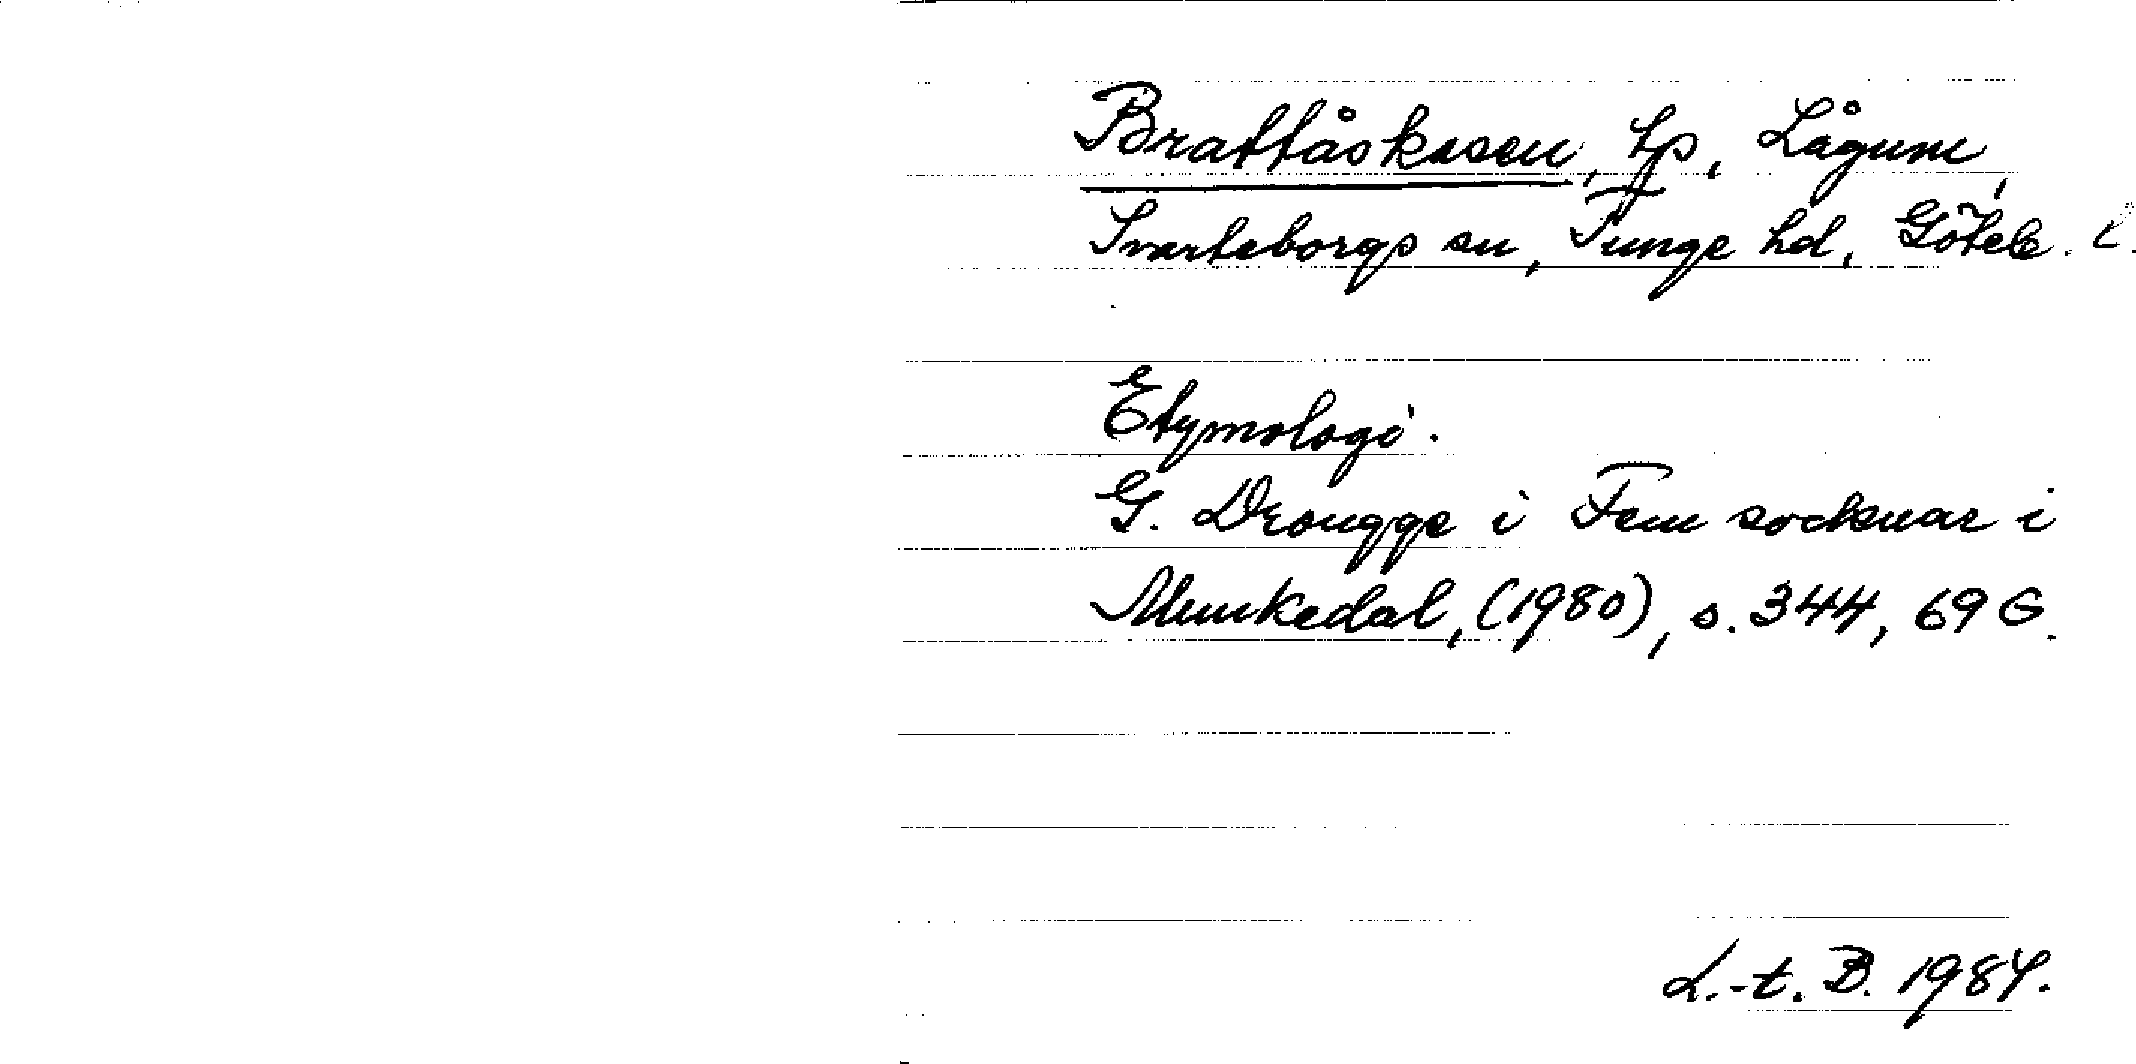 Brattåskasen, tp, Lågum,
Svarteborgs sn, Tunge hd, Göteb. l.
Etymologi.
G. Drougge i Fem socknar i
Munkedal, (1980), s. 344, 69 G.
L.-t. B. 1984.